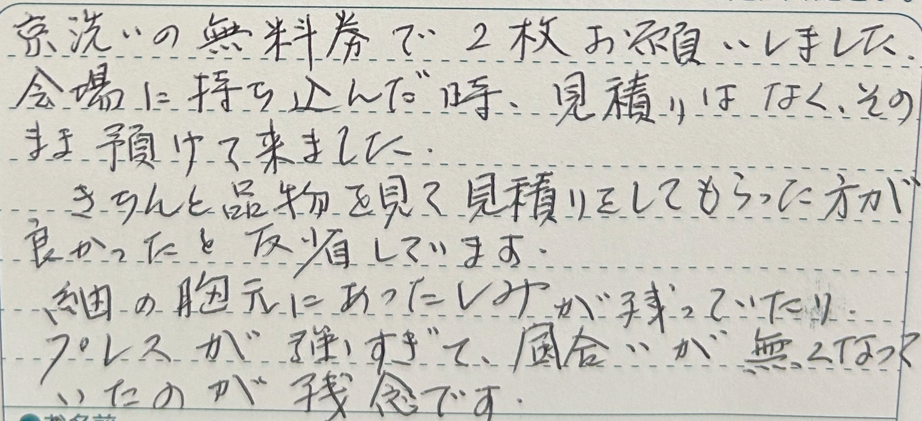 京洗いの無料券で2枚お願いしました.
会場に持ち込んだ時、見積りはなく、その
まま預けて来ました.
きちんと品物を見て見積りをしてもらった方が
良かったと反省しています.
紬の胸元にあったしみが残っていたり.
プレスが強すぎて、風合いが無くなって
いたのが残念です.